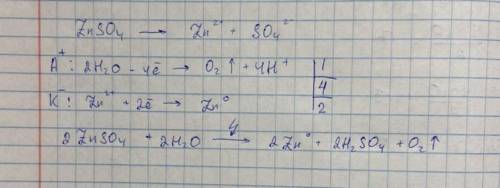 ZnSO₄ → Zn²⁺ + SO₄²⁻
A⁺: 2H₂O - 4ē → O₂↑ + 4H⁺ | 1
4
K⁻: Zn²⁺ + 2ē → Zn⁰ | 2
2ZnSO₄ + 2H₂O → 2Zn⁰ + 2H₂SO₄ + O₂↑